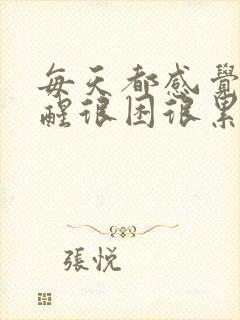 每天都感覺
醒很困很累
張悅